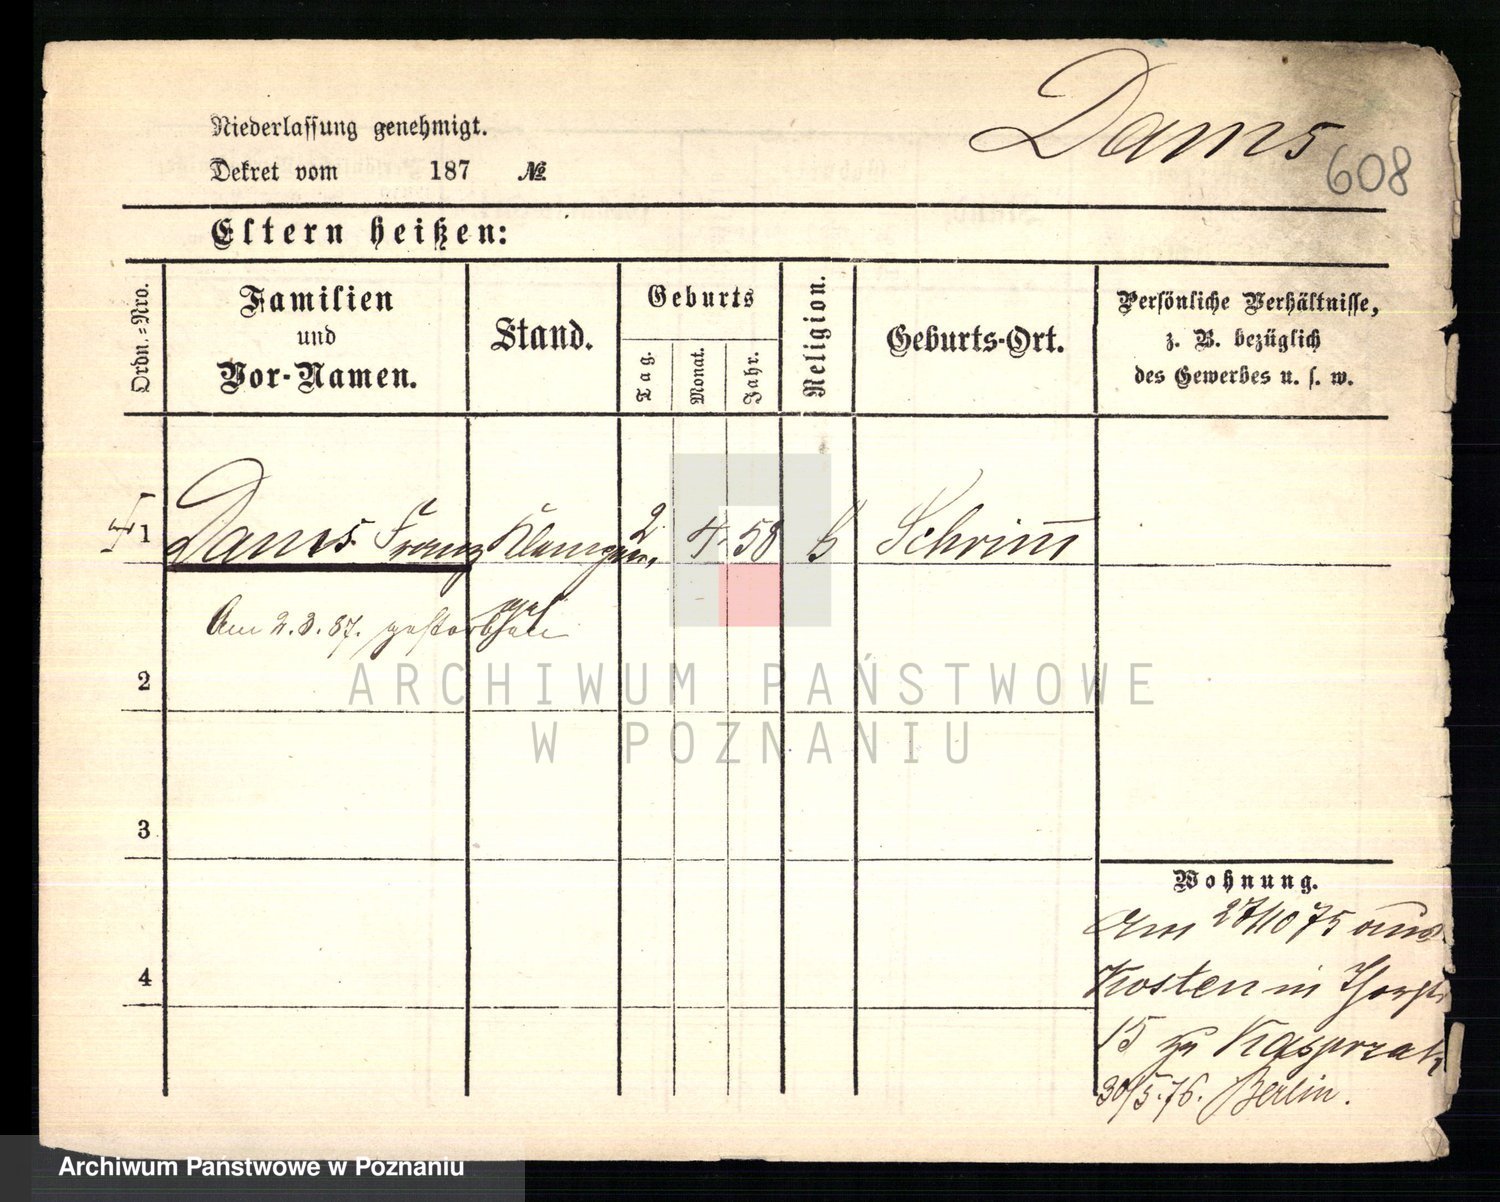 Dams
608
Niederlassung genehmigt.
Dekret vom 187 №
Eltern heißen:
Ordn.-Nro.
Familien
und
Vor-Namen.
Stand.
Geburts
Tag.
Monat.
Jahr.
Religion.
Geburts-Ort.
Persönliche Verhältnisse,
z. B. bezüglich
des Gewerbes u. s. w.
1 Dams Franz 2 4. 58 Schrim
Am 2.3.87. gestorben
2
3
4
Wohnung.
Am 27/10 75 aus
Kosten in
15 zu Kasprzak
30/5.76. Berlin.
ARCHIWUM PAŃSTWOWE
W POZNANIU
Archiwum Państwowe w Poznaniu